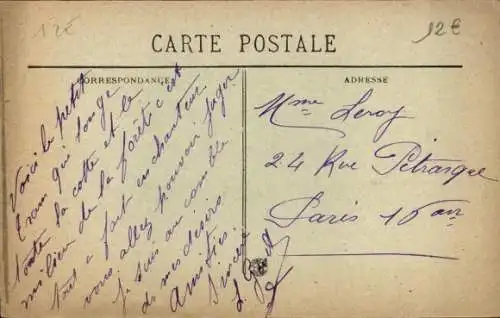 12€
12€
CARTE POSTALE
CORRESPONDANCE
ADRESSE
Voici le petit
tram qui longe
toute la cotte et la
milieu de la forêt c'est
tout a fait en chanteur
vous allez pouvoir juger
je suis au comble
de mes désirs
Amitiés
Mme Leroy
24 Rue Pétrarque
Paris 16arr